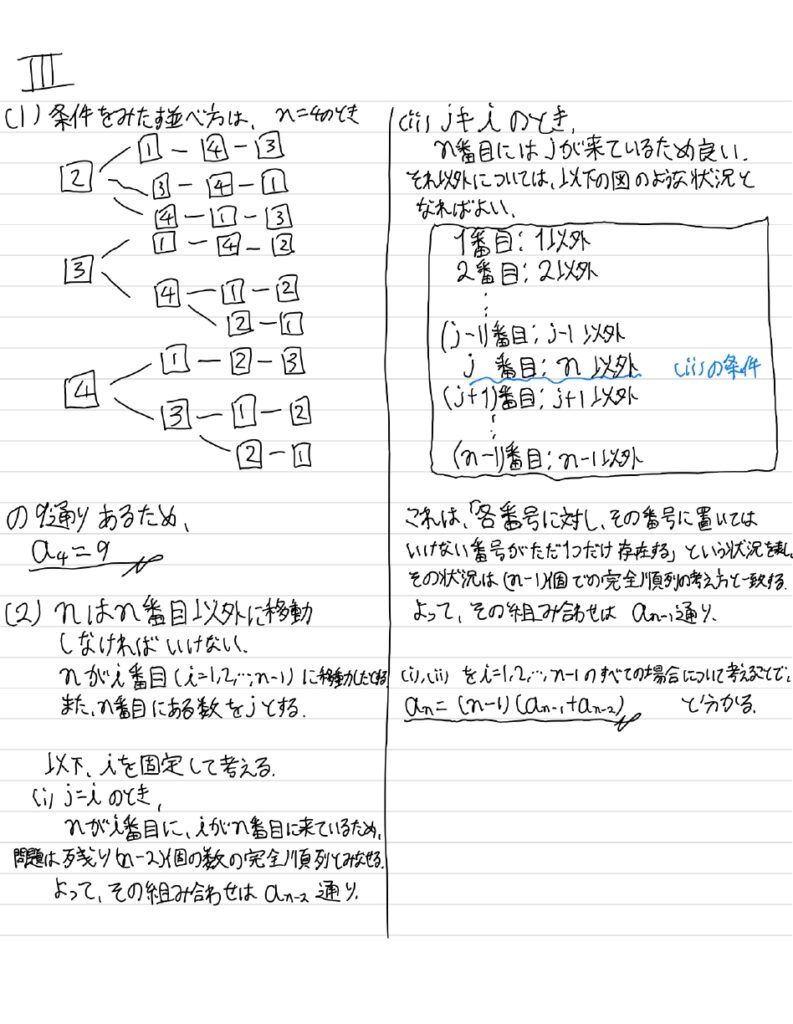 III
(1) 条件をみたす並べ方は、 n=4のとき
2 1 - 4 - 3
3 - 4 - 1
4 - 1 - 3
3 1 - 4 - 2
4 - 1 - 2
2 - 1
4 1 - 2 - 3
3 - 1 - 2
2 - 1
の9通りあるため、
a₄=9
(2) nはn番目以外に移動
しなければいけない.
nがi番目(i=1,2,…,n-1)に移動したとする.
また、n番目にある数をjとする.
以下、iを固定して考える.
(i) j=iのとき,
nがi番目に、iがn番目に来ているため、
問題は残り(n-2)個の数の完全順列とみなせる.
よって、その組み合わせは aₙ₋₂ 通り.
(ii) j≠iのとき,
n番目にはjが来ているため良い.
それ以外については、以下の図のような状況と
なればよい.
1番目:1以外
2番目:2以外
⋮
(j-1)番目:j-1以外
j 番目:n以外 (ii)の条件
(j+1)番目:j+1以外
⋮
(n-1)番目:n-1以外
これは、「各番号に対し、その番号に置いては
いけない番号がただ1つだけ存在する」という状況を表し、
その状況は(n-1)個での完全順列の考え方と一致する.
よって、その組み合わせは aₙ₋₁通り.
(i),(ii) をi=1,2,…,n-1のすべての場合について考えることで、
aₙ=(n-1)(aₙ₋₁+aₙ₋₂) と分かる.